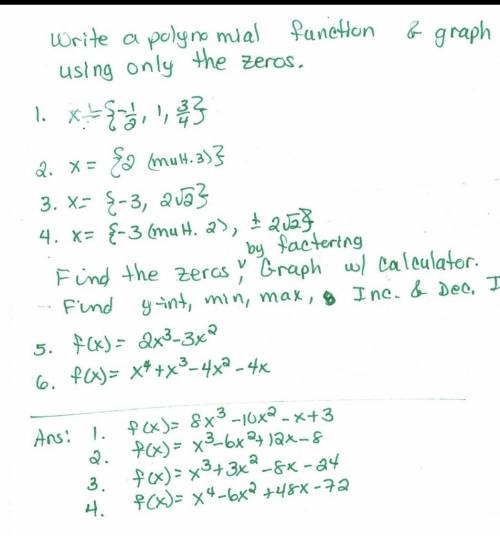 Write a polynomial function & graph
using only the zeros.
1. x = {-1/2, 1, 3/4}
2. x = {2 (mult. 3)}
3. x = {-3, 2√2}
4. x = {-3 (mult. 2), ± 2√2}
by factering
Find the zeros, Graph w/ calculator.
Find y-int, min, max, & Inc. & Dec. I
5. f(x) = 2x³-3x²
6. f(x) = x⁴+x³-4x²-4x
Ans: 1. f(x) = 8x³-10x²-x+3
2. f(x) = x³-6x²+12x-8
3. f(x) = x³+3x²-8x-24
4. f(x) = x⁴-6x²+48x-72